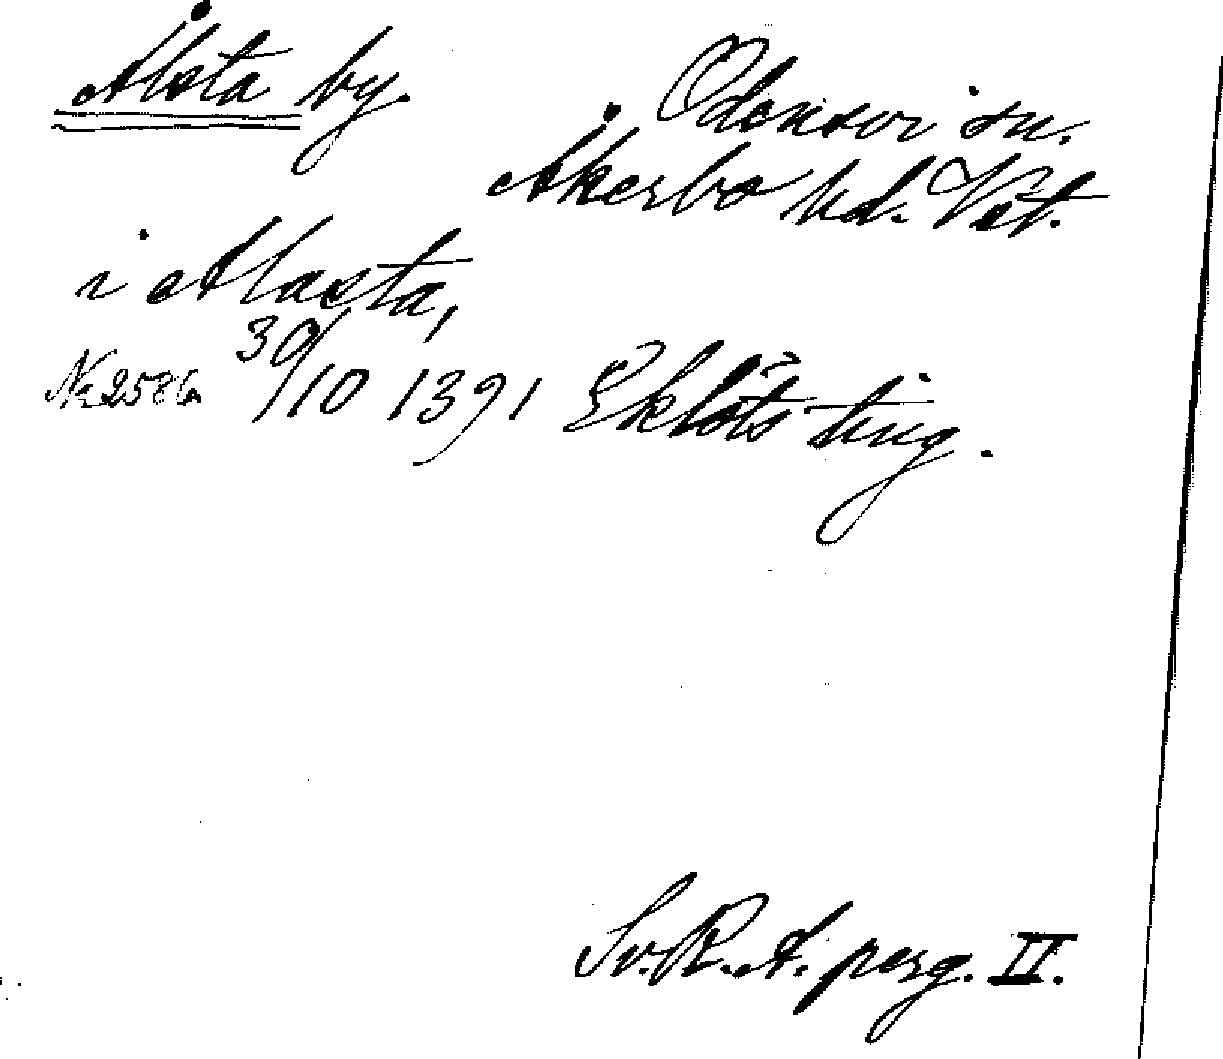 Ålsta by.
Odensvi sn.
Åkerbo hd. Vst.
i Alasta,
Nr 2586 30/10 1391 Eklöts ting.
Sv. R. A. perg. II.